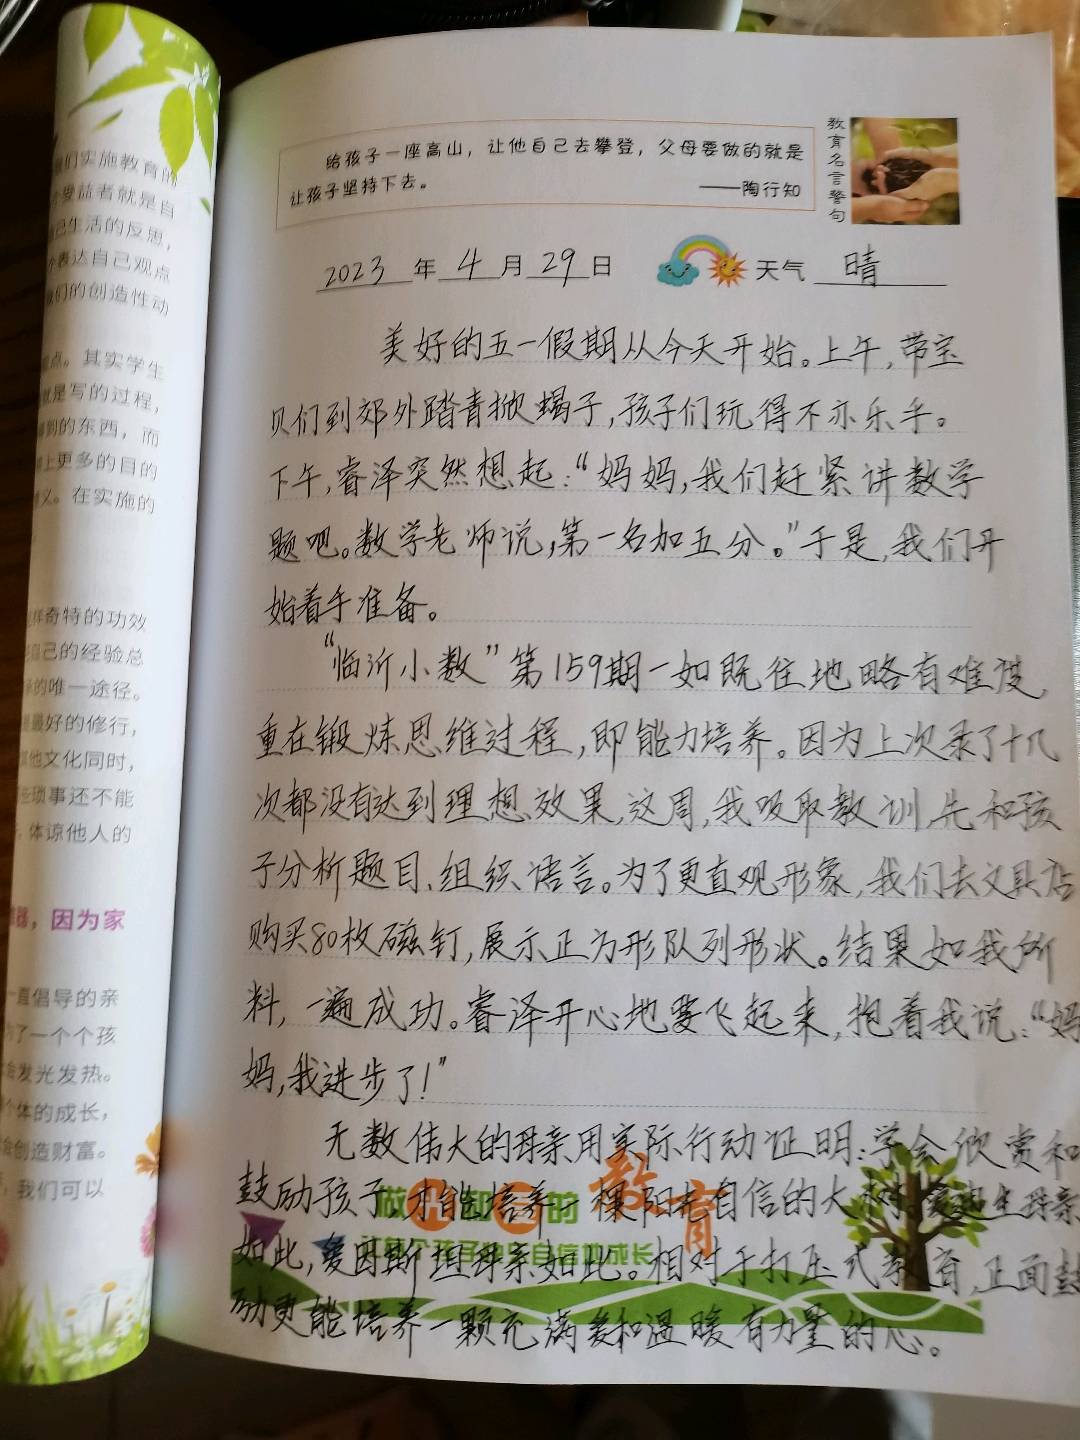 给孩子一座高山，让他自己去攀登，父母要做的就是
让孩子坚持下去。 ——陶行知
教育名言警句
2023 年 4 月 29 日 天气 晴
美好的五一假期从今天开始。上午，带宝
贝们到郊外踏青掀蝎子，孩子们玩得不亦乐乎。
下午，睿泽突然想起：“妈妈，我们赶紧讲数学
题吧。数学老师说，第一名加五分。”于是，我们开
始着手准备。
“临沂小数”第159期一如既往地略有难度，
重在锻炼思维过程，即能力培养。因为上次录了十几
次都没有达到理想效果，这周，我吸取教训，先和孩
子分析题目、组织语言。为了更直观形象，我们去文具店
购买80枚磁钉，展示正方形队列形状。结果如我所
料，一遍成功。睿泽开心地要飞起来，抱着我说：“妈
妈，我进步了！”
无数伟大的母亲用实际行动证明：学会欣赏和
鼓励孩子，才能培养一棵阳光自信的大树。爱迪生母亲
如此，爱因斯坦母亲如此。相对于打压式教育，正面鼓
励更能培养一颗充满爱和温暖有力量的心。
做 的教育
让每个孩子 自信地成长
我们实施教育的
受益者就是自
己生活的反思，
表达自己观点
我们的创造性动
点。其实学生
就是写的过程，
到的东西，而
上更多的目的
义。在实施的
样奇特的功效
自己的经验总
的唯一途径。
最好的修行，
他文化同时，
些琐事还不能
体谅他人的
器，因为家
一直倡导的亲
了一个个孩
会发光发热。
个体的成长，
会创造财富。
，我们可以